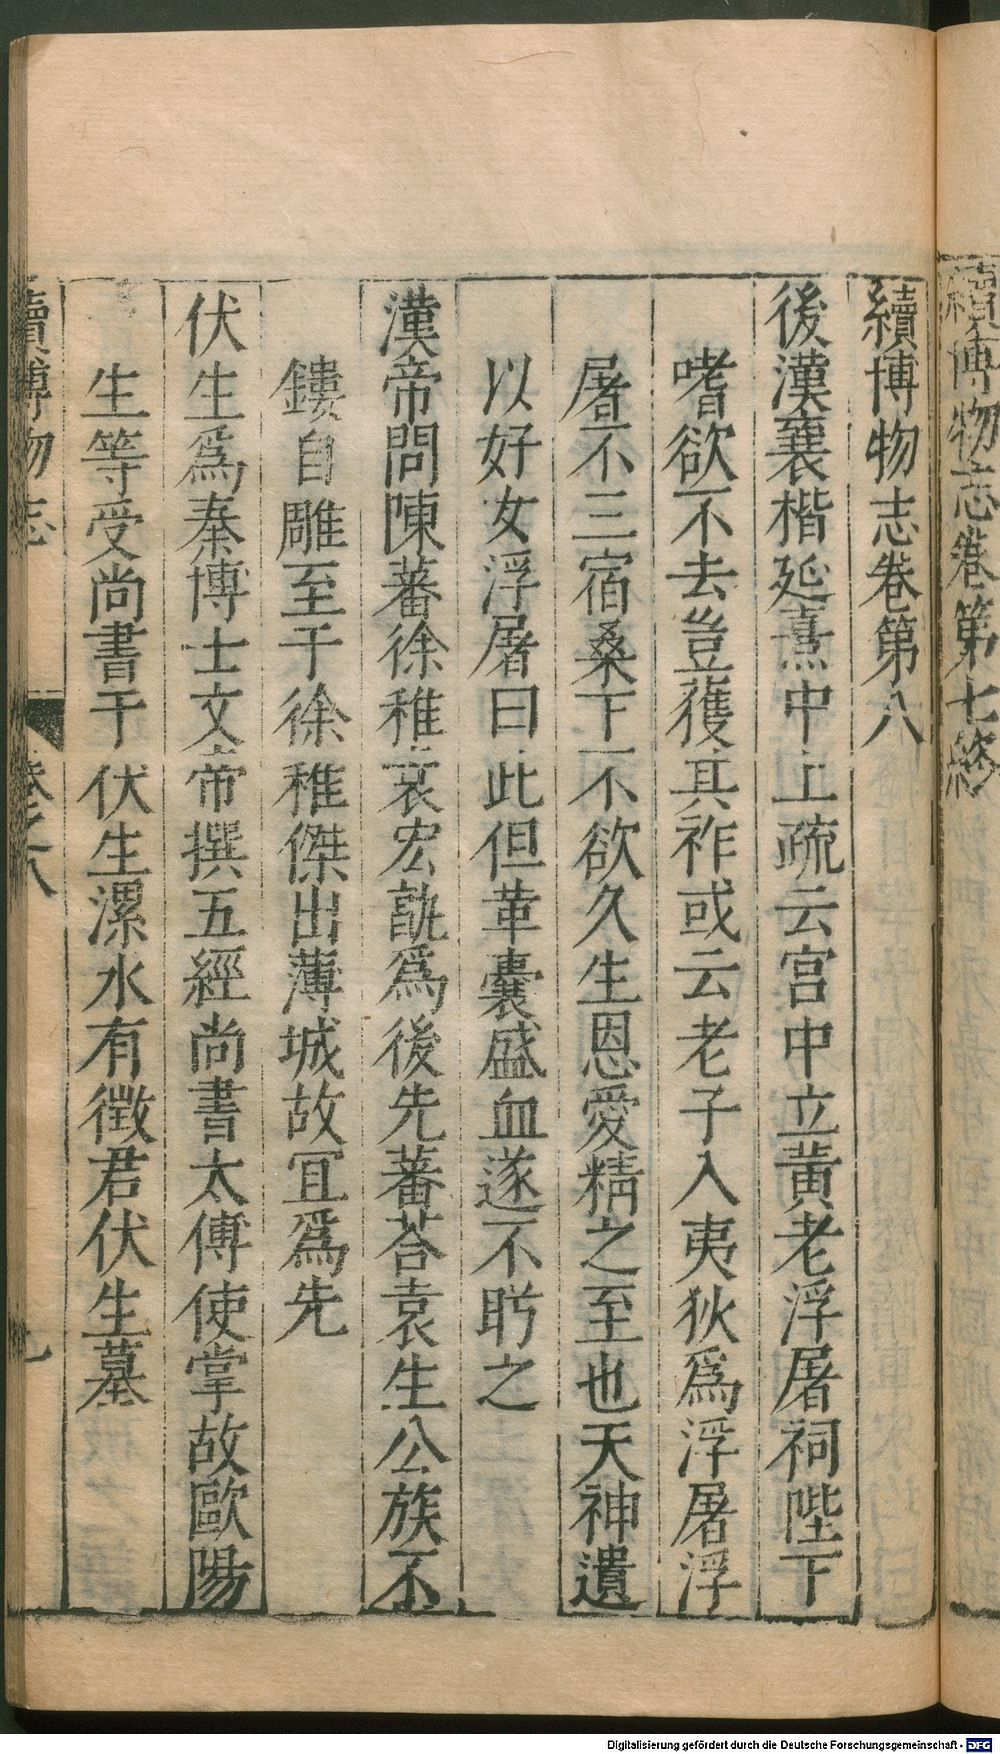 續博物志卷第七終
續博物志卷第八
後漢襄楷延熹中上疏云宫中立黃老浮屠祠陛下
嗜欲不去豈獲其祚或云老子入夷狄爲浮屠浮
屠不三宿桑下不欲久生恩愛精之至也天神遺
以好女浮屠曰此但革囊盛血遂不眄之
漢帝問陳蕃徐稚袁宏孰爲後先蕃荅袁生公族不
鏤自雕至于徐稚傑出薄城故冝爲先
伏生爲秦博士文帝撰五經尚書太傅使掌故歐陽
生等受尚書于伏生漯水有徵君伏生墓
續博物志
卷之八
九
Digitalisierung gefördert durch die Deutsche Forschungsgemeinschaft - DFG